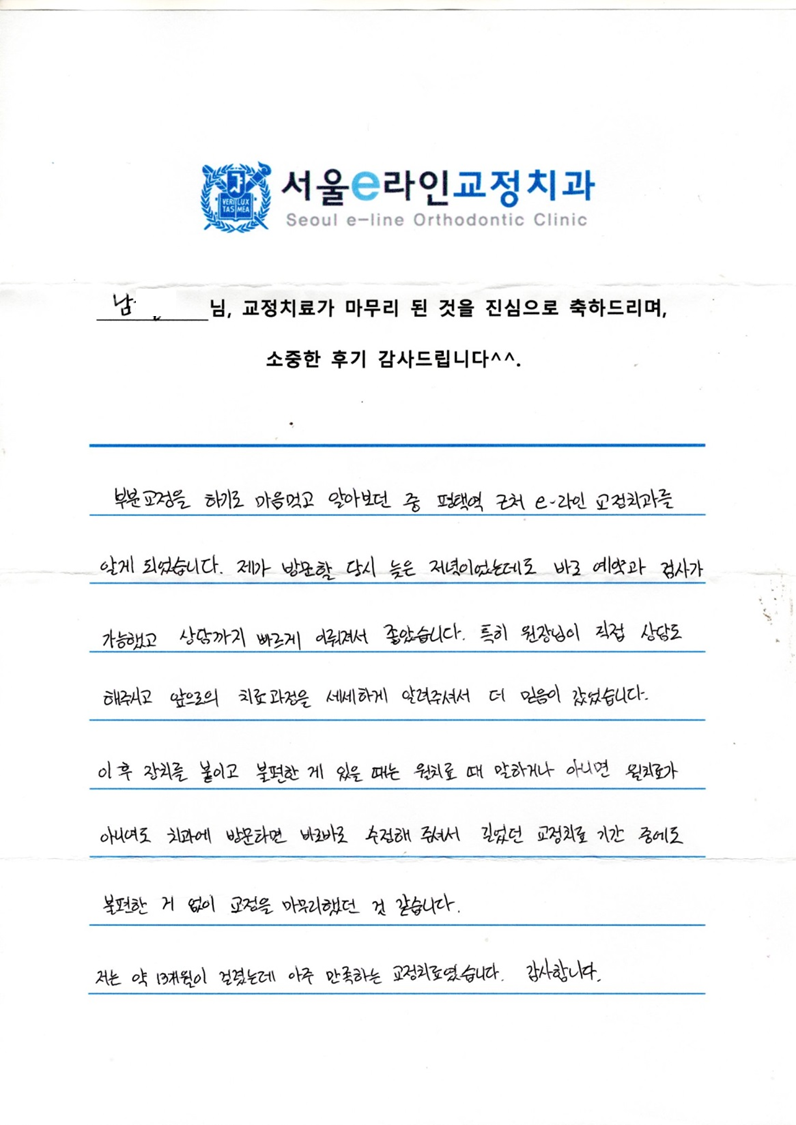 서울e라인교정치과
Seoul e-line Orthodontic Clinic
VERI LUX
TAS MEA
남 님, 교정치료가 마무리 된 것을 진심으로 축하드리며,
소중한 후기 감사드립니다^^.
부분교정을 하기로 마음먹고 알아보던 중 평택역 근처 e-라인 교정치과를
알게 되었습니다. 제가 방문할 당시 늦은 저녁이었는데도 바로 예약과 검사가
가능했고 상담까지 빠르게 이뤄져서 좋았습니다. 특히 원장님이 직접 상담도
해주시고 앞으로의 치료과정을 세세하게 알려주셔서 더 믿음이 갔었습니다.
이후 장치를 붙이고 불편한 게 있을 때는 월치료 때 말하거나 아니면 월치료가
아니여도 치과에 방문하면 바로바로 수정해 주셔서 길었던 교정치료 기간 중에도
불편한 거 없이 교정을 마무리했던 것 같습니다.
저는 약 13개월이 걸렸는데 아주 만족하는 교정치료였습니다. 감사합니다.